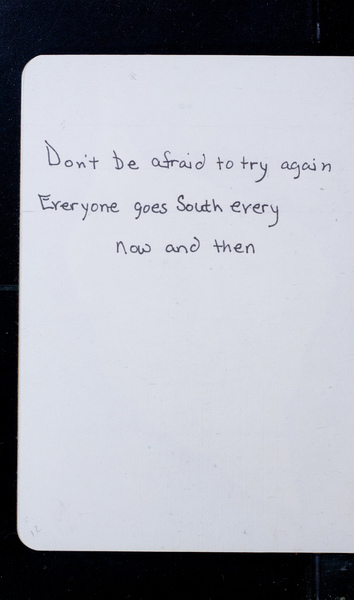 Don't be afraid to try again
Everyone goes South every
now and then